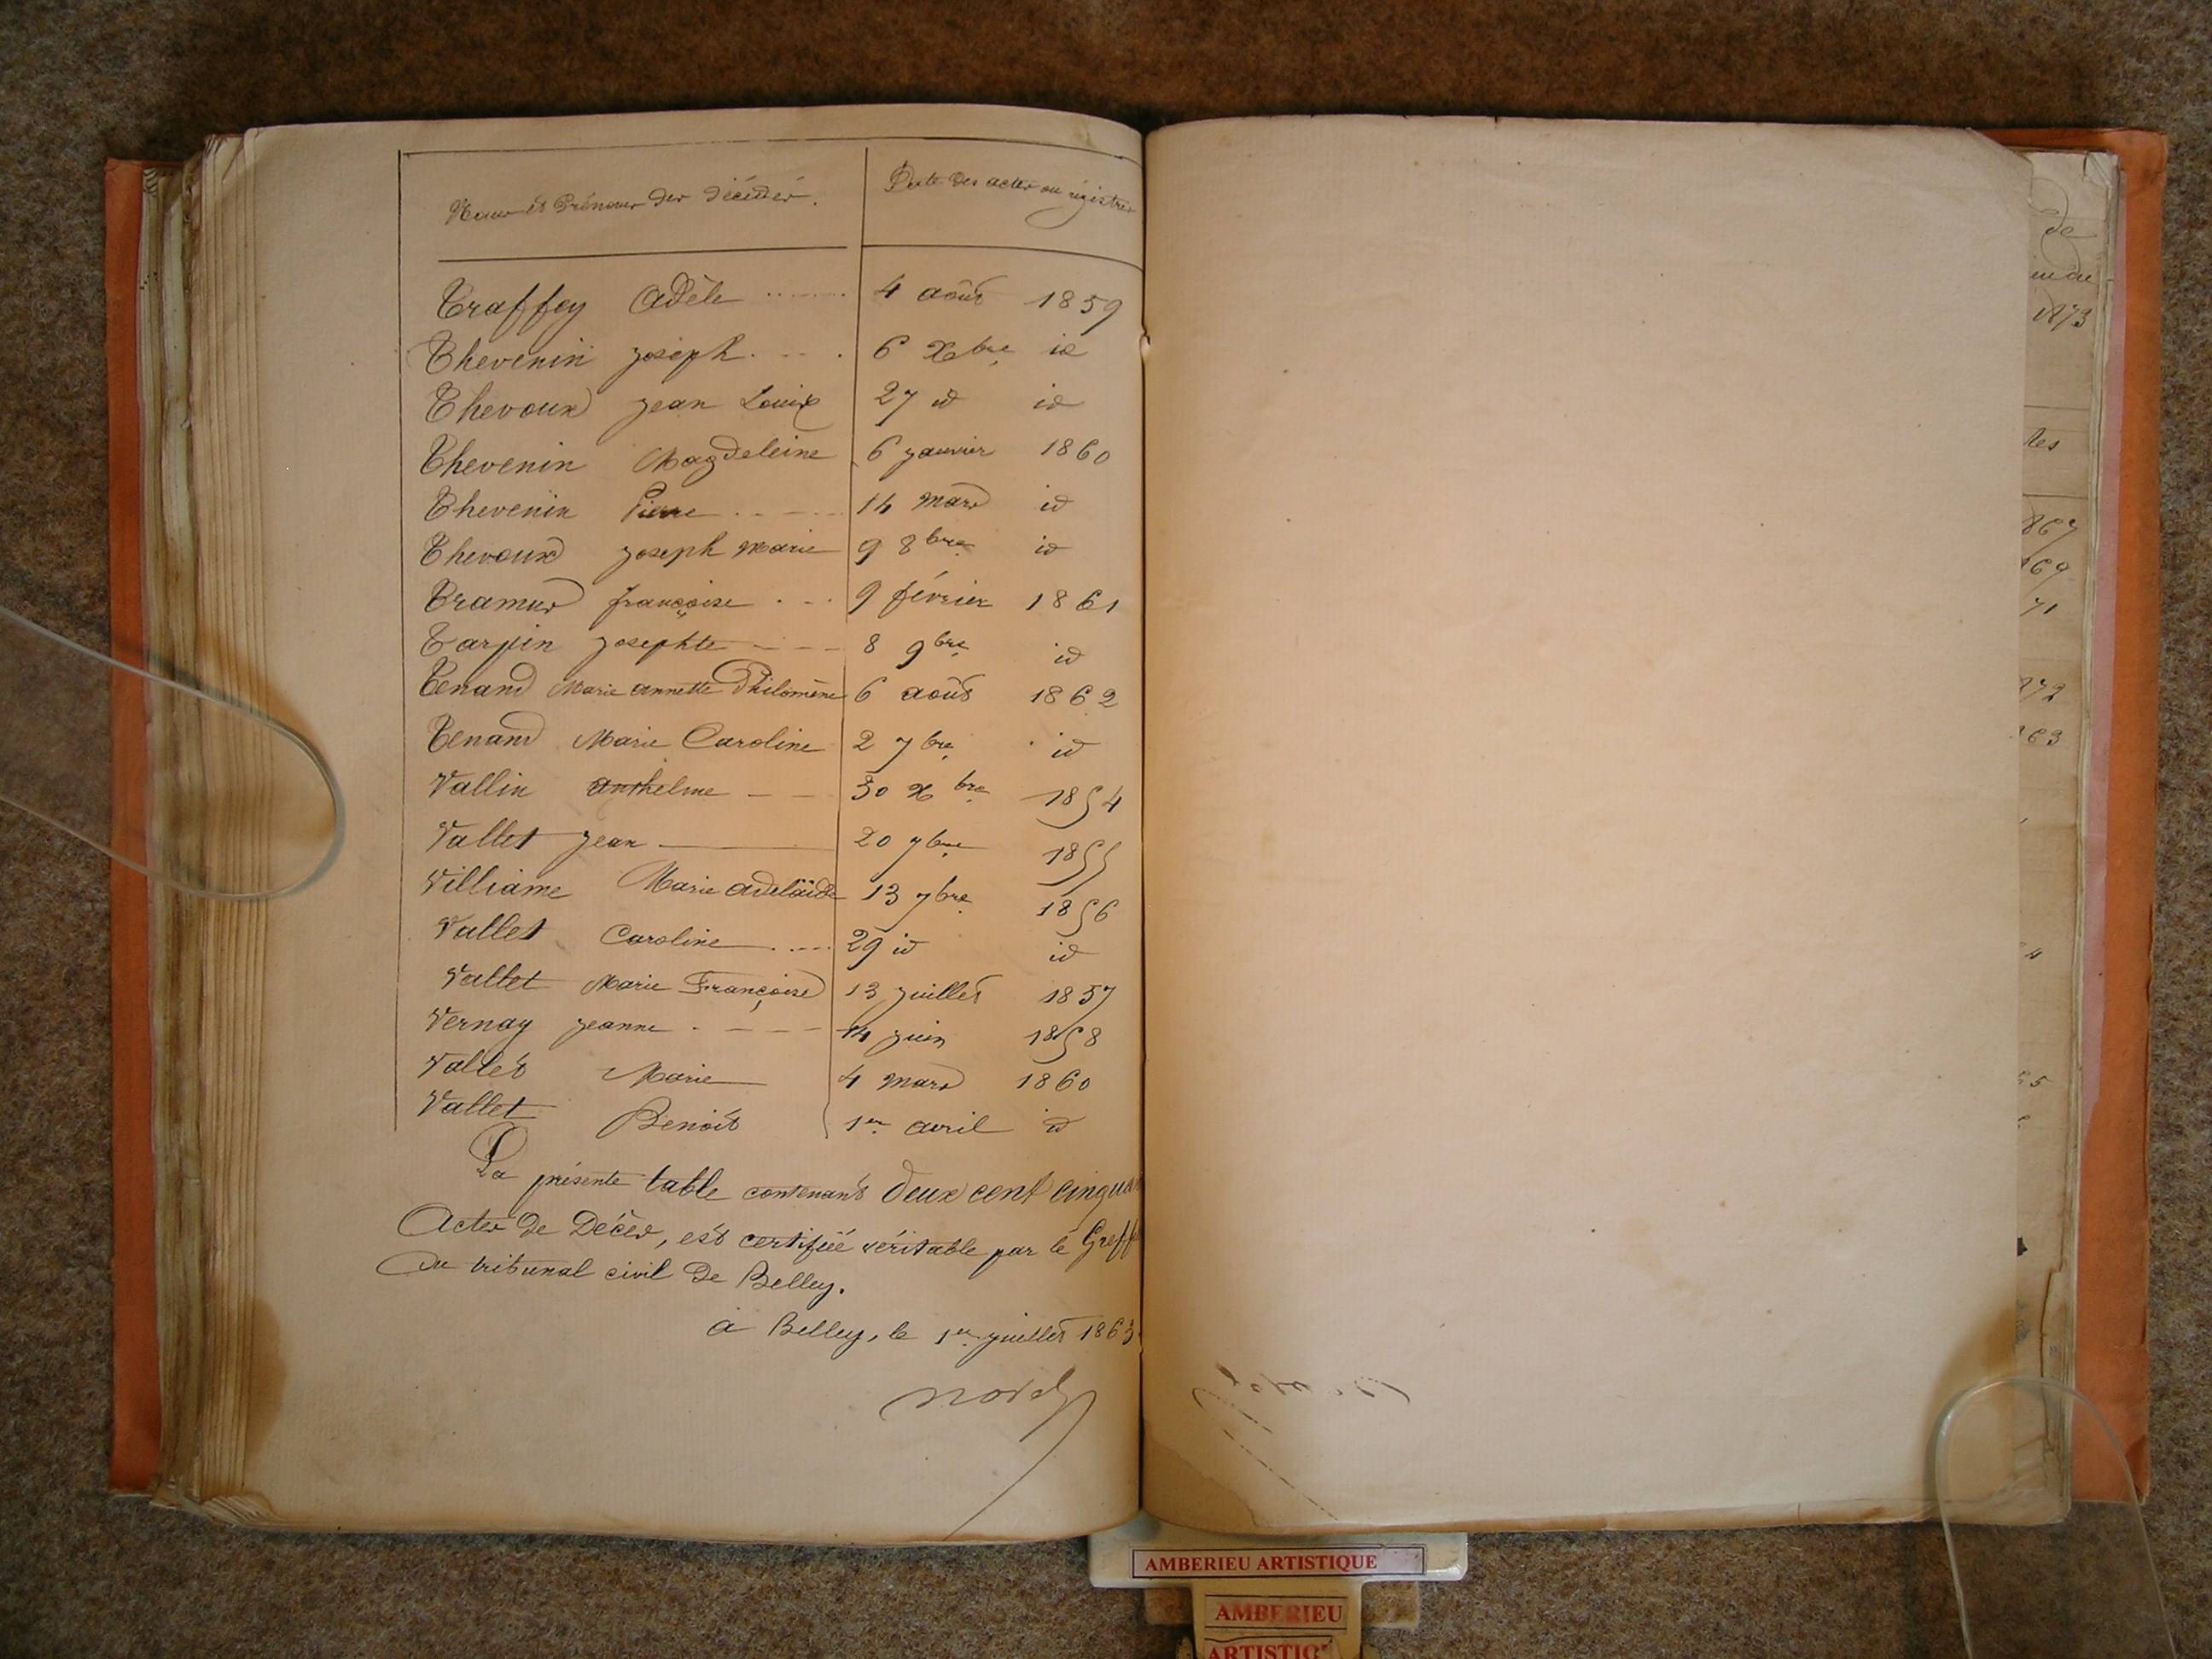 Noms et Prénoms des décédés. Date des actes ou régistres
Traffey Adèle 4 août 1859
Thevenin Joseph 6 Xbre id
Thevoux Jean Louis 27 id id
Thevenin Magdeleine 6 janvier 1860
Thevenin Pierre 14 mars id
Thevoux Joseph Marie 9 8bre id
Tramus françoise 9 février 1861
Tarpin Josephte 8 9bre id
Tenand Marie annette Philomène 6 août 1862
Tenand Marie Caroline 2 7bre id
Vallin anthelme 30 Xbre 1854
Vallet Jean 20 7bre 1855
Villiame Marie adelaïde 13 7bre 1856
Vallet Caroline 29 id id
Vallet Marie Françoise 13 juillet 1857
Vernay Jeanne 14 juin 1858
Vallet Marie 4 mars 1860
Vallet Benoit 1er avril id
La présente table contenant deux cent cinquan
Actes de Décès, est certifiée véritable par le Greff
du tribunal civil de Belley.
à Belley, le 1er juillet 1863
de
1873
AMBERIEU ARTISTIQUE
AMBERIEU
ARTISTIQ